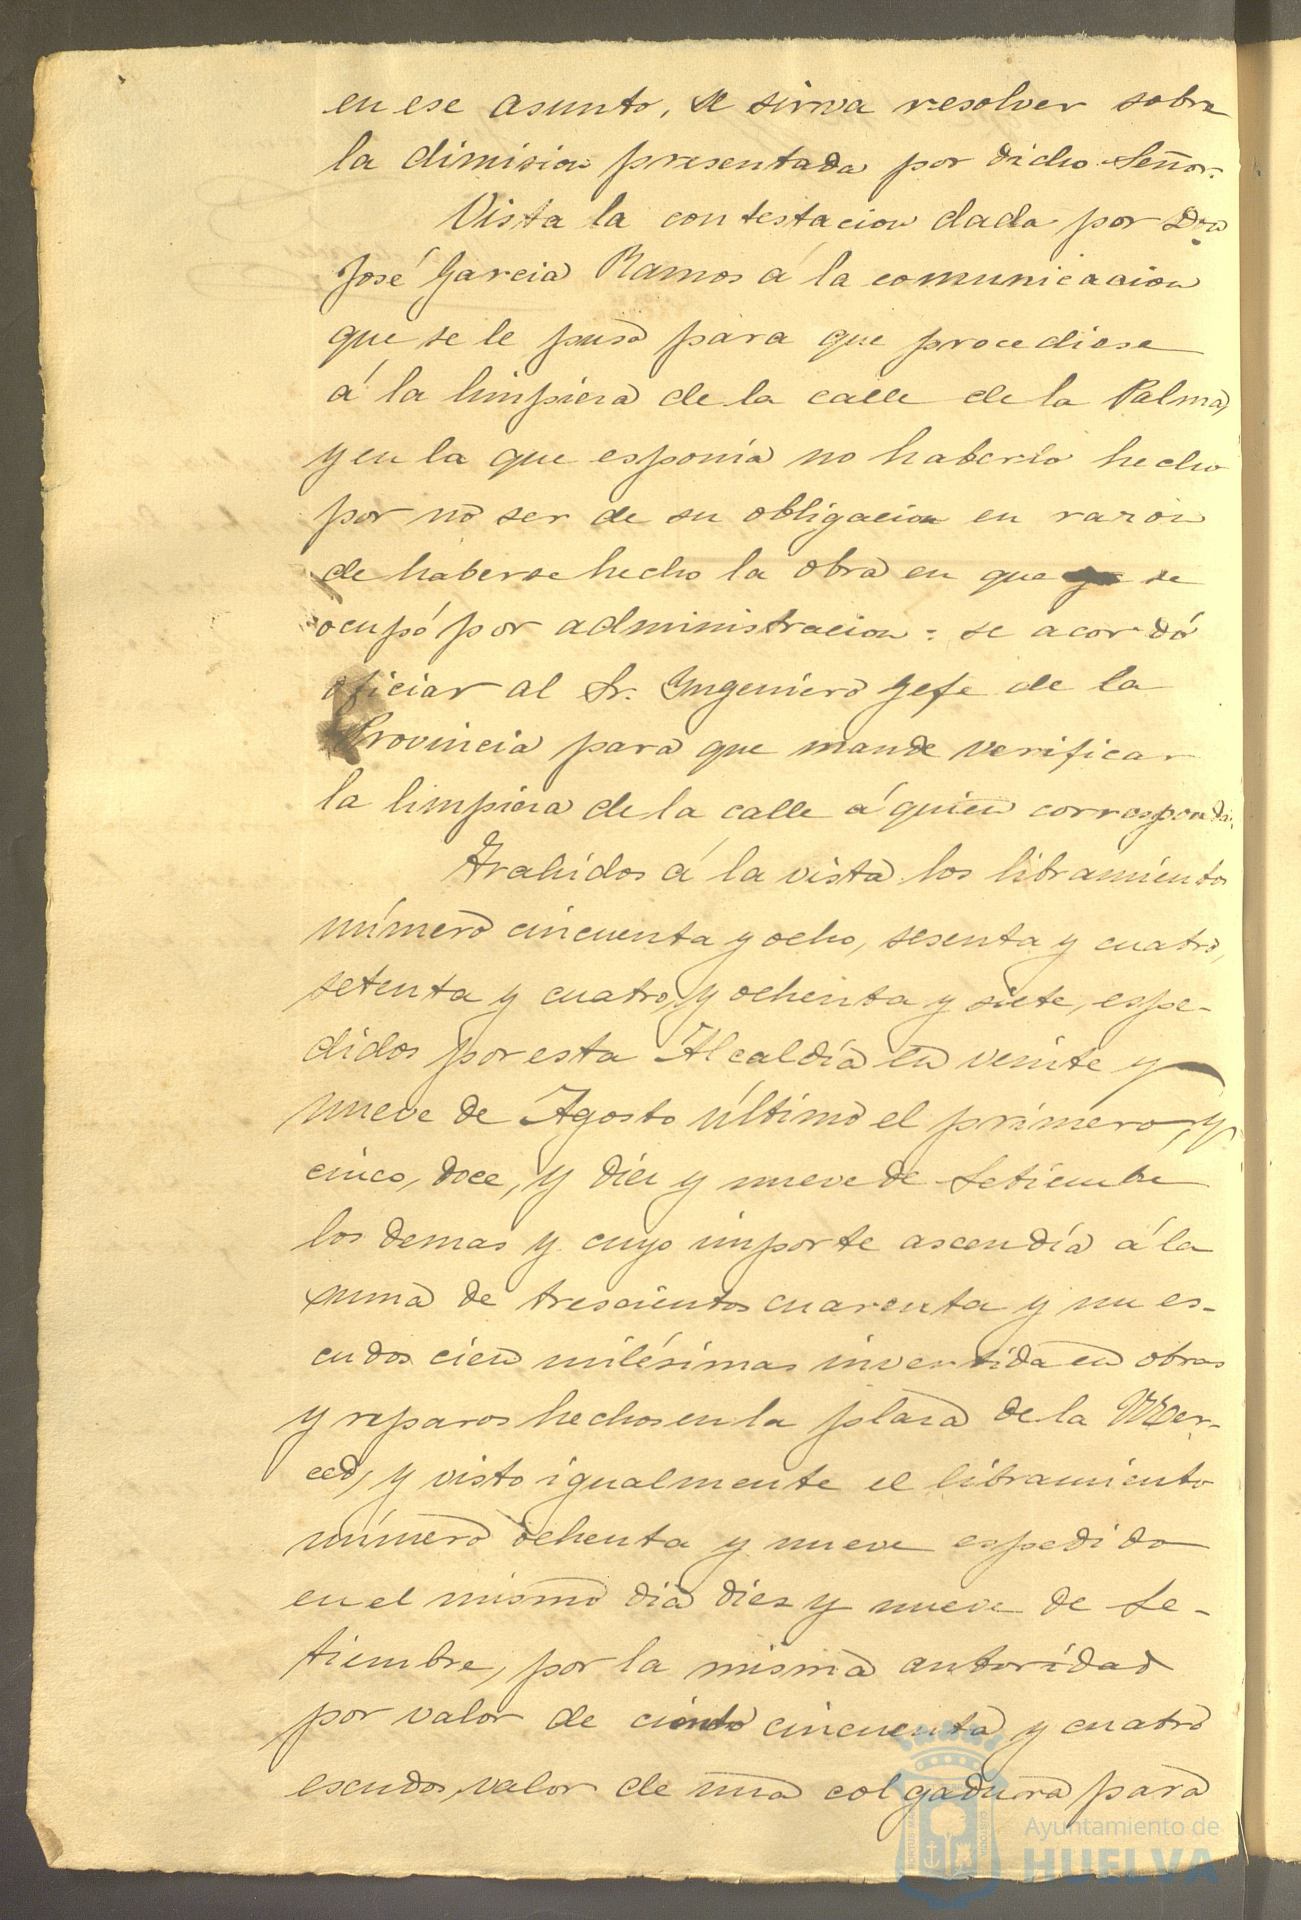 en ese asunto, se sirva resolver sobre
la dimision presentada por dicho Señor.
Vista la contestacion dada por Don
José Garcia Ramos á la comunicacion
que se le pasó para que procediese
á la limpieza de la calle de la Palma,
y en la que esponía no haberlo hecho
por no ser de su obligacion en razon
de haberse hecho la obra en que se
ocupó por administracion: se acordó
oficiar al Sr. Yngeniero Gefe de la
Provincia para que mande verificar
la limpieza de la calle á quien corresponda.
Trahidos á la vista los libramientos
número cincuenta y ocho, sesenta y cuatro,
setenta y cuatro, y ochenta y siete, espe-
didos por esta Alcaldía en veinte y
nueve de Agosto último el primero, y
cinco, doce, y diez y nueve de Setiembre
los demas y cuyo importe ascendía á la
suma de trescientos cuarenta y un es-
cudos cien milésimas invertida en obras
y reparos hechos en la plaza de la Mer-
ced, y visto igualmente el libramiento
número ochenta y nueve espedido
en el mismo dia diez y nueve de Se-
tiembre, por la misma autoridad
por valor de ciento cincuenta y cuatro
escudos, valor de una colgadura para
Ayuntamiento de
HUELVA